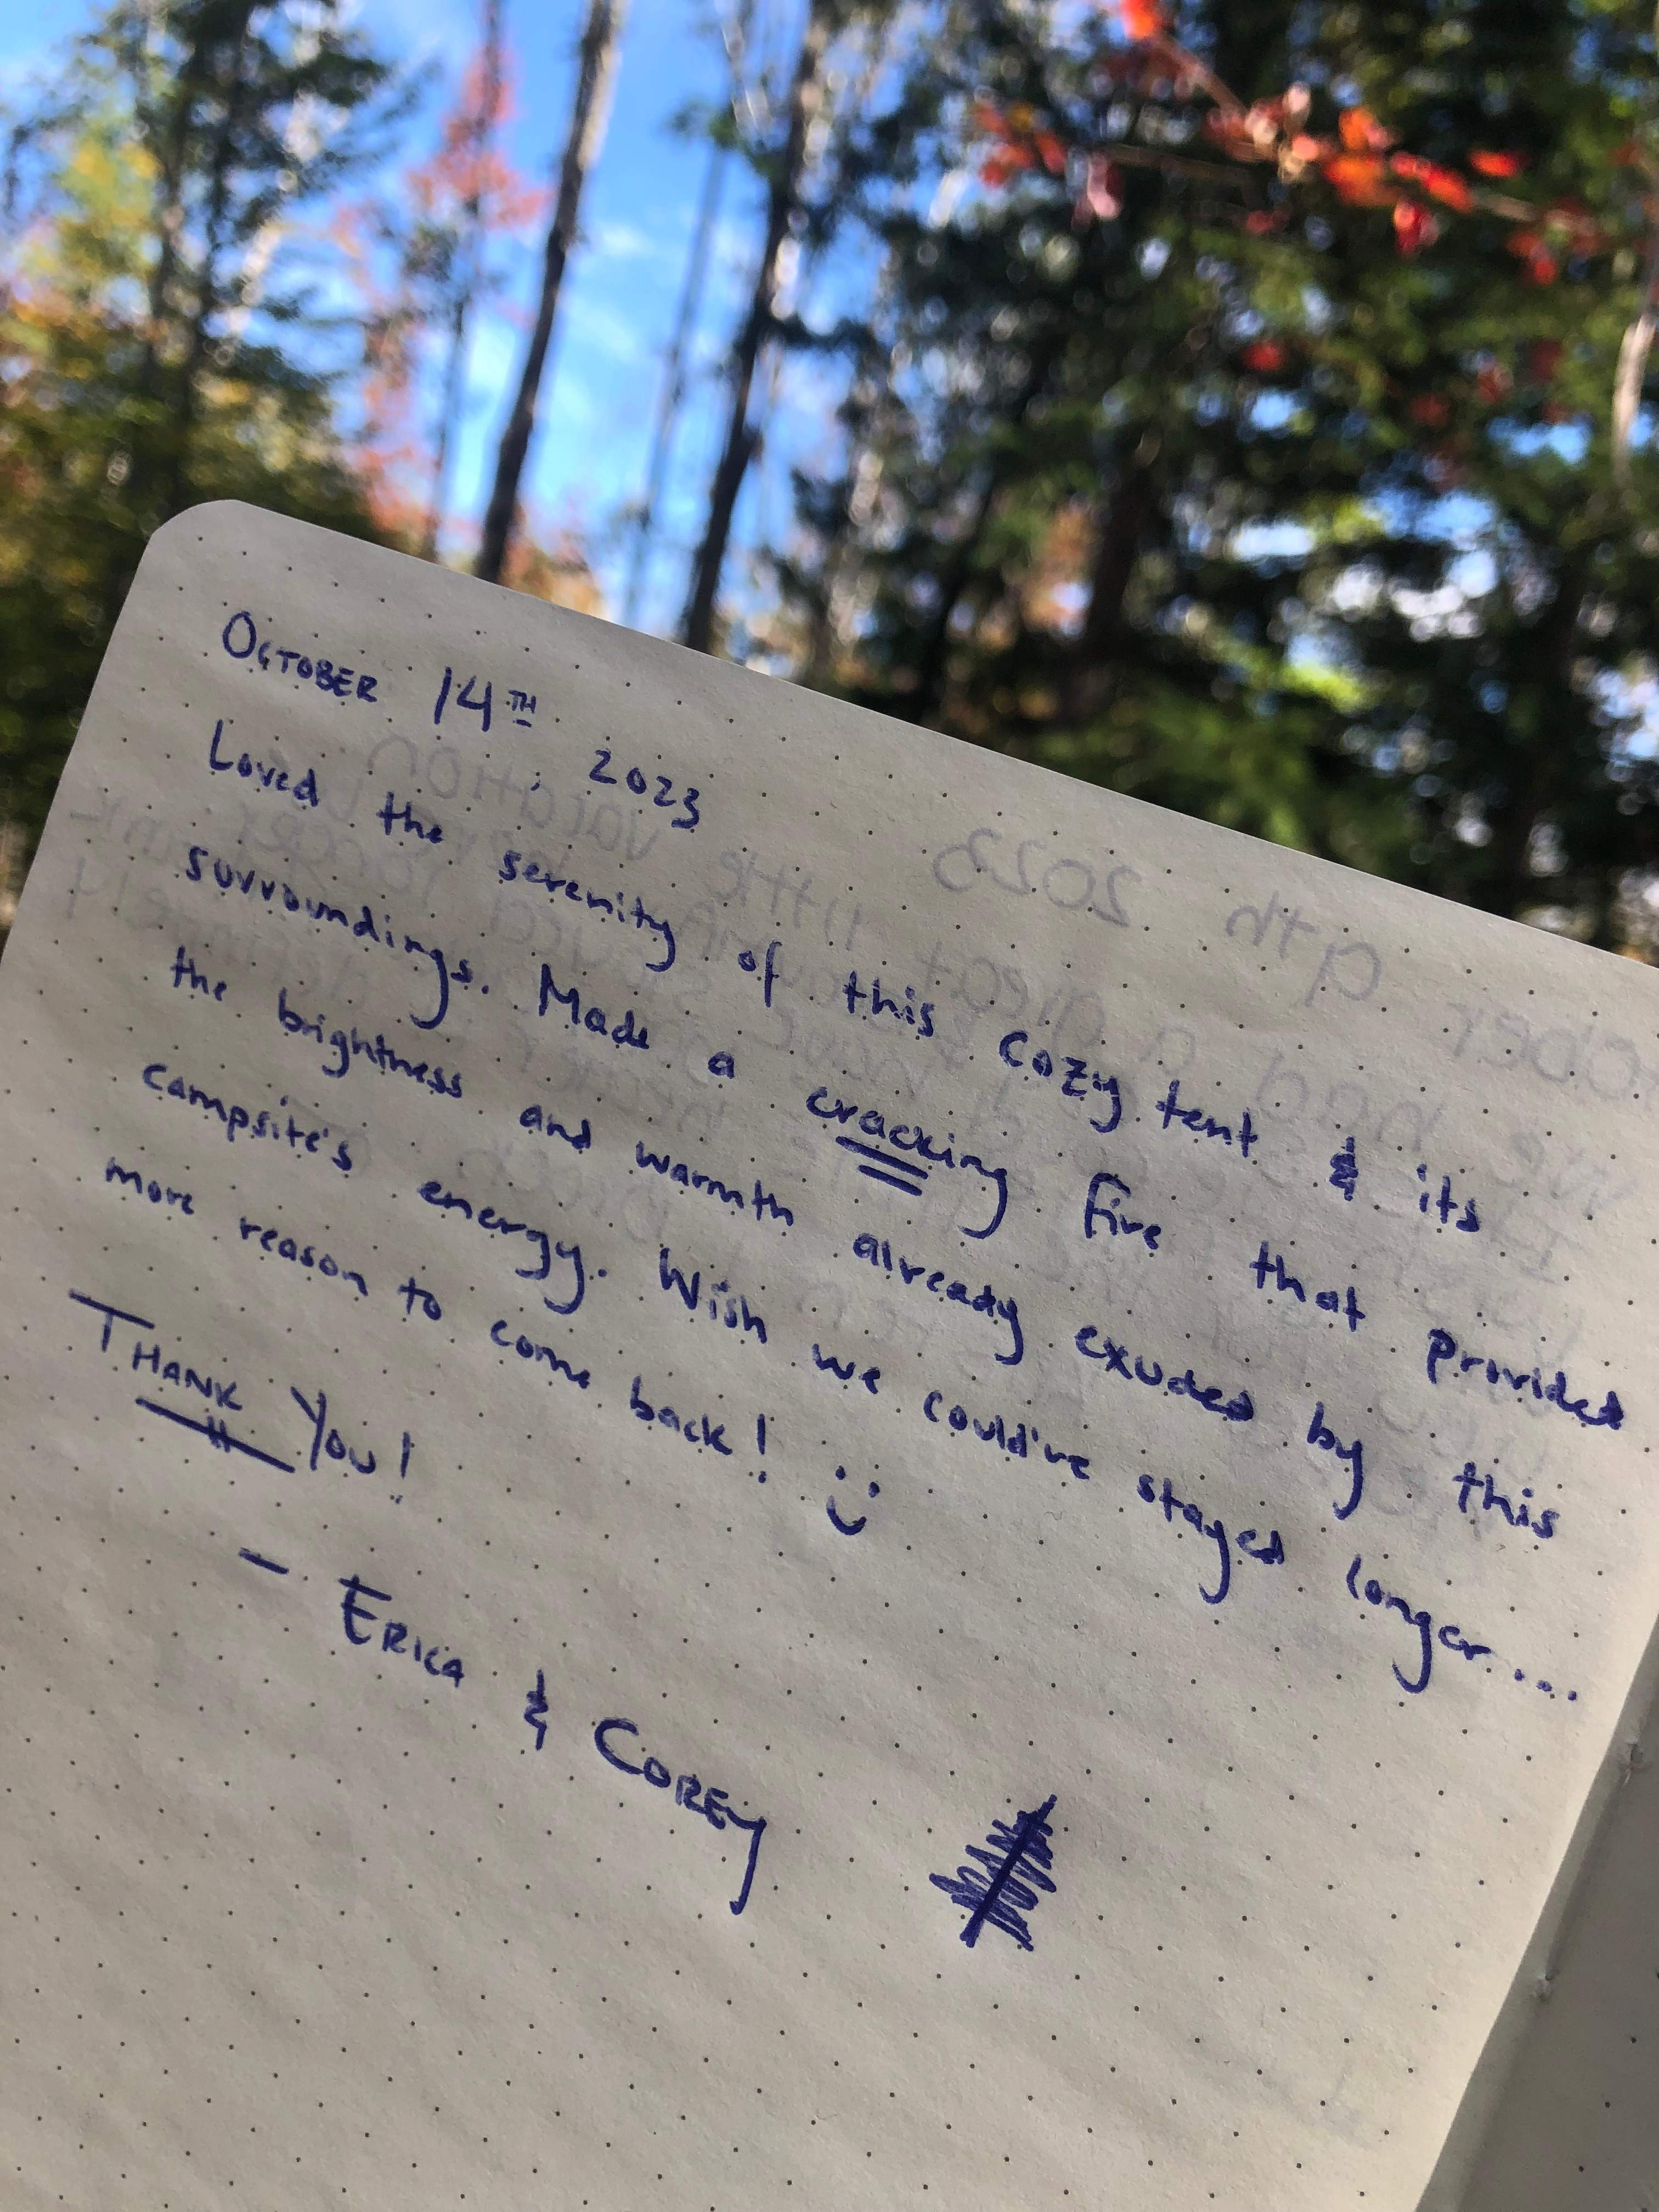 OCTOBER 14TH 2023
Loved the serenity of this cozy tent & its
surroundings. Made a cracking fire that provided
the brightness and warmth already exuded by this
campsite's energy. Wish we could've stayed longer...
more reason to come back! :)
THANK YOU!
- ERICA & COREY